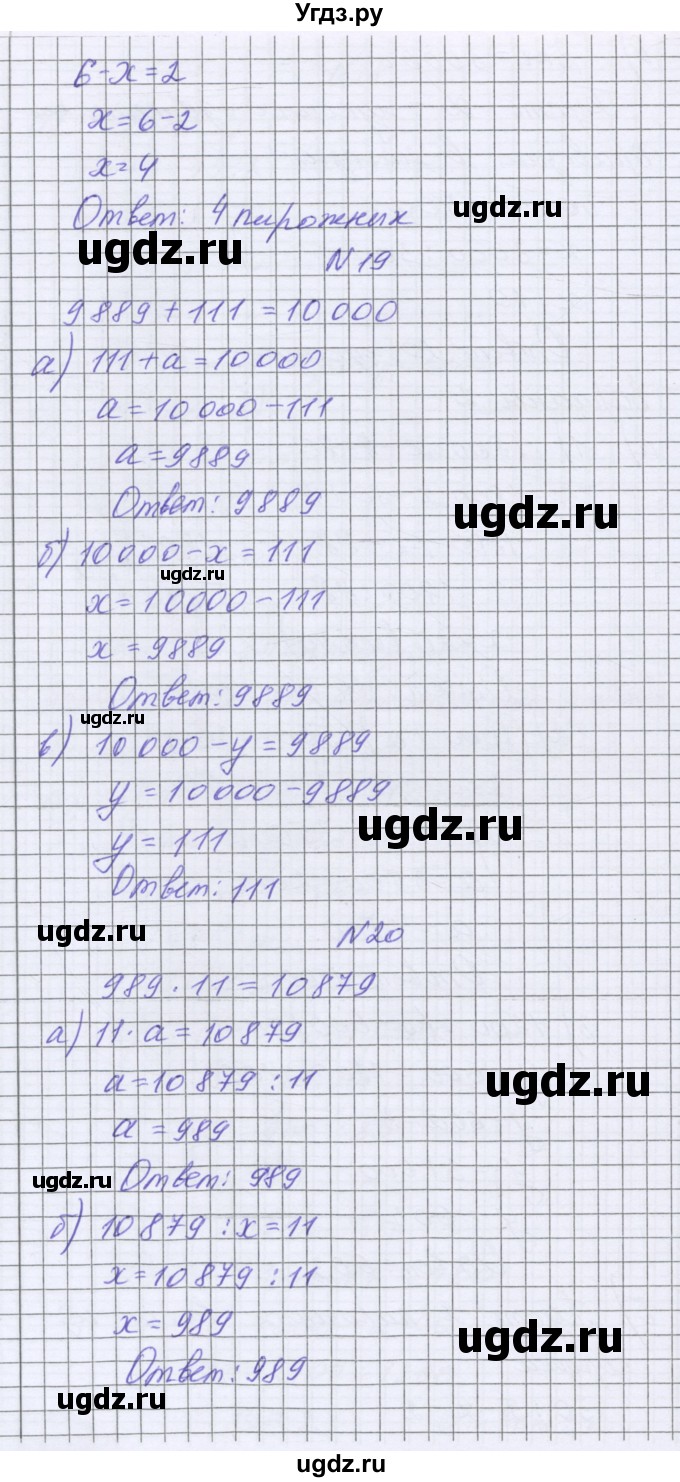 Угдз.ру
6-x=2
x=6-2
x=4
ugdz.ru
Ответ: 4 пирожных
ugdz.ru
N 19
9889+111=10 000
а) 111+a=10000
a=10 000-111
a=9889
Ответ: 9889
ugdz.ru
б) 10000-x=111
ugdz.ru
x=10000-111
x=9889
Ответ: 9889
ugdz.ru
в) 10 000-y=9889
y=10000-9889
ugdz.ru
y=111
Ответ: 111
ugdz.ru
N20
989·11=10879
а) 11·a=10879
a=10879:11
ugdz.ru
a=989
ugdz.ru
Ответ: 989
б) 10879:x=11
x=10879:11
x=989
ugdz.ru
Ответ: 989
ugdz.ru
ugdz.ru